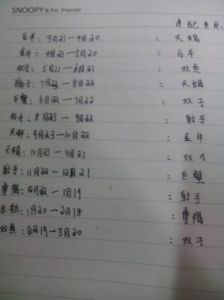 SNOOPY & his friends
白羊: 3月21-4月20 : 天蝎
金牛: 4月21-5月20 : 白羊
双子: 5月21-6月21 : 双鱼
狮子: 7月22-8月22 : 天蝎
巨蟹: 6月22-7月22 : 双子
8月23-9月22 : 射手
天秤: 9月23-10月22 : 金牛
天蝎: 10月23-11月21 : 双子
射手: 11月22-12月21 : 巨蟹
摩羯: 12月22-1月19 : 射手
水瓶: 1月20-2月18 : 摩羯
双鱼: 2月19-3月20 : 双子